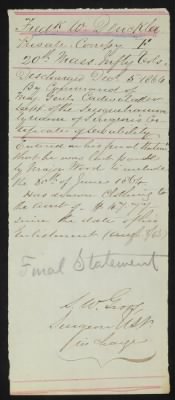 Frank W. Dinckley
Private Company K
20th Mass Infty Vols.
Discharged Dec 5 1864
By Command of
Maj Genl Cadwalader
by reason of Surgeon's Cer-
tificate of disability
Entered on his final statement
that he was last paid
by Major Wood to include
the 30th of June 1864.
Has drawn Clothing to
the amt of $47
since the date of his
Enlistment
Final Statement
S. W. Gross
Surgeon USV
in charge